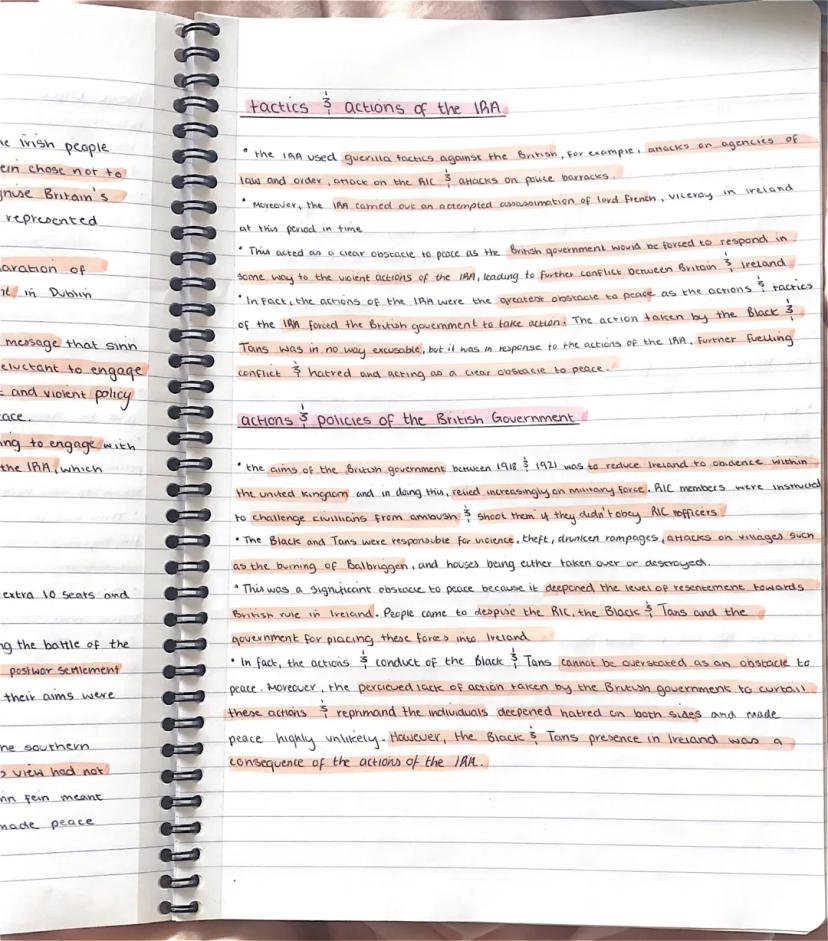 he Irish people
ein chose not to
gnise Britain's
represented
aration of
in Dublin
message that sinn
eluctant to engage
and violent policy
ace.
ng to engage with
the IRA, which
extra 10 seats and
ng the battle of the
postwar settlement
their aims were
he southern
s view had not
nn fein meant
made peace
tactics & actions of the IRA
• the IRA used guerilla tactics against the British, for example, attacks on agencies of
law and order, attack on the RIC & attacks on police barracks.
• Moreover, the IRA carried out an attempted assassination of lord French, viceroy in Ireland
at this period in time
• This acted as a clear obstacle to peace as the British government would be forced to respond in
some way to the violent actions of the IRA, leading to further conflict between Britain & Ireland
• In fact, the actions of the IRA were the greatest obstacle to peace as the actions & tactics
of the IRA forced the British government to take action. The action taken by the Black &
Tans was in no way excusable, but it was in response to the actions of the IRA, further fuelling
conflict & hatred and acting as a clear obstacle to peace.
actions & policies of the British Government
• the aims of the British government between 1918 & 1921 was to reduce Ireland to obidence within
the united kingdom and in doing this, relied increasingly on military force. RIC members were instructed
to challenge civillians from ambush & shoot them if they didn't obey RIC officers
• The Black and Tans were responsible for violence, theft, drunken rampages, attacks on villages such
as the burning of Balbriggen, and houses being either taken over or destroyed.
• This was a significant obstacle to peace because it deepened the level of resentement towards
British rule in Ireland. People came to despise the RIC, the Black & Tans and the
government for placing these forces into Ireland
• In fact, the actions & conduct of the Black & Tans cannot be overstated as an obstacle to
peace. Moreover, the percieved lack of action taken by the British government to curtail
these actions & reprimand the individuals deepened hatred on both sides and made
peace highly unlikely. However, the Black & Tans presence in Ireland was a
consequence of the actions of the IRA.